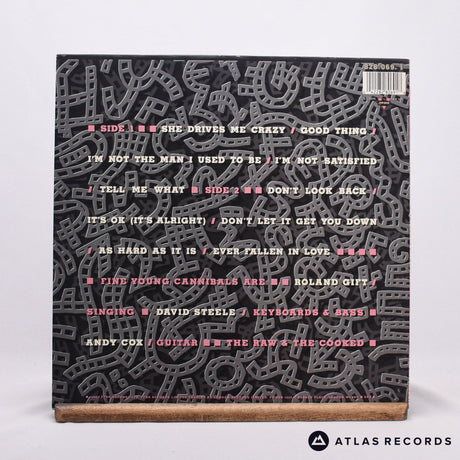 828 069. 1
■ SIDE 1 ■ ■ SHE DRIVES ME CRAZY / GOOD THING /
I'M NOT THE MAN I USED TO BE / I'M NOT SATISFIED
/ TELL ME WHAT ■ SIDE 2 ■ ■ DON'T LOOK BACK /
IT'S OK (IT'S ALRIGHT) / DON'T LET IT GET YOU DOWN
/ AS HARD AS IT IS / EVER FALLEN IN LOVE ■ ■ ■ ■
■ FINE YOUNG CANNIBALS ARE ■ ■ ROLAND GIFT /
SINGING ■ DAVID STEELE / KEYBOARDS & BASS ■
ANDY COX / GUITAR ■ ■ THE RAW & THE COOKED ■
ATLAS RECORDS